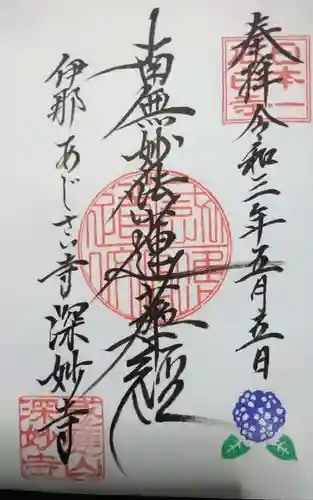 奉拝 令和三年五月五日
南無妙法蓮華経
伊那 あじさい寺 深妙寺
深妙寺